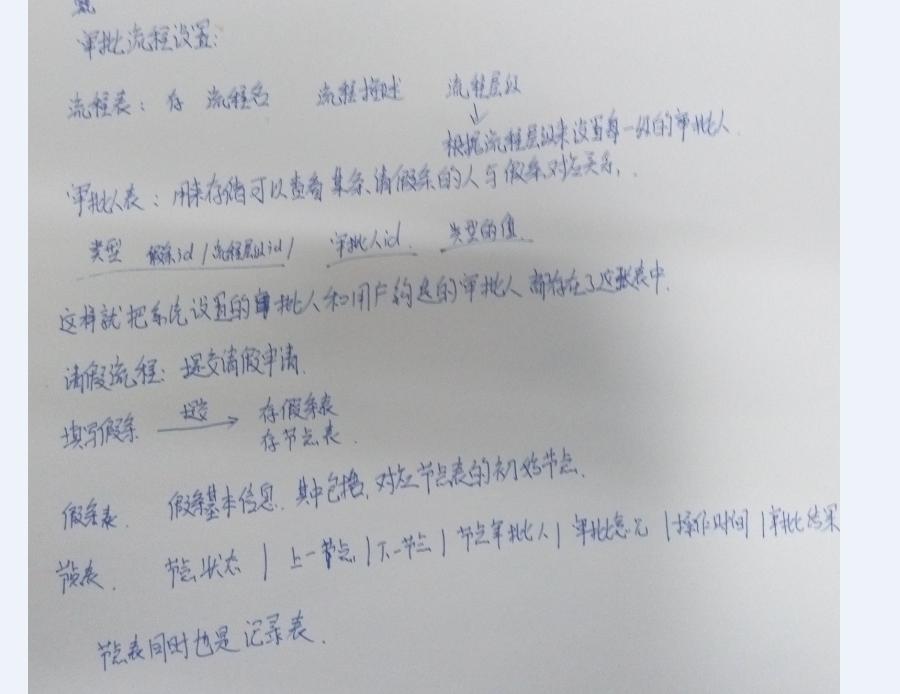 审批流程设置:
流程表: 存 流程名 流程描述 流程层级
↓
根据流程层级来设置每一级的审批人.
审批人表: 用来存储可以查看某条请假条的人与假条对应关系.
类型 假条id/流程层级id/ 审批人id. 类型的值.
这样就把系统设置的审批人和用户的审批人都存在了这张表中.
请假流程: 提交请假申请.
填写假条 提交→ 存假条表
存节点表.
假条表. 假条基本信息, 其中包括, 对应节点表的初始节点.
节点表. 节点状态 | 上一节点 | 下一节点 | 节点审批人 | 审批意见 | 操作时间 | 审批结果
节点表同时也是记录表.